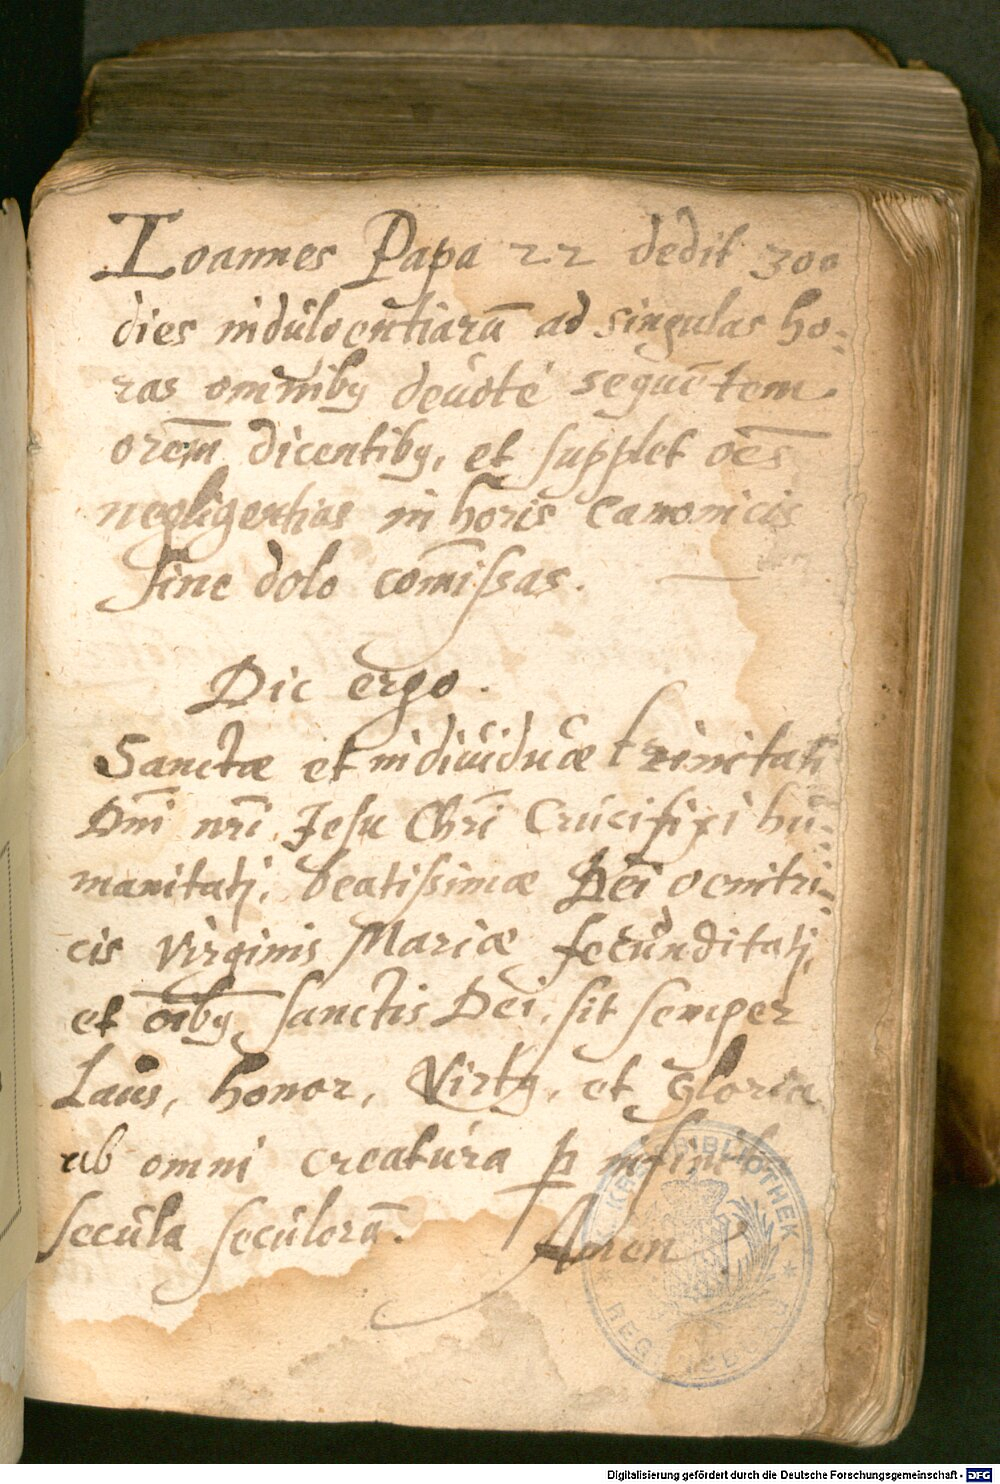 Ioannes Papa 22 dedit 300
dies indulgentiarū ad singulas ho-
ras omnibꝰ deuotè sequētem
orem̄ dicentibꝰ, et supplet oēs
negligentias in horis Canonicis
sine dolo com̄issas.
Dic ergo.
Sanctæ et indiuiduæ trinitati
Dn̄i nr̄i Jesu Chr̄i Crucifixi hu-
manitati, beatissimæ Dei genitri-
cis Virginis Mariæ fecunditati,
et oībꝰ sanctis Dei, sit semper
Laus, honor, Virtꝰ, et gloria
ab omni creatura ꝑ infinita
secula seculorū. Amen
KR. BIBLIOTHEK
REGENSBURG
Digitalisierung gefördert durch die Deutsche Forschungsgemeinschaft - DFG